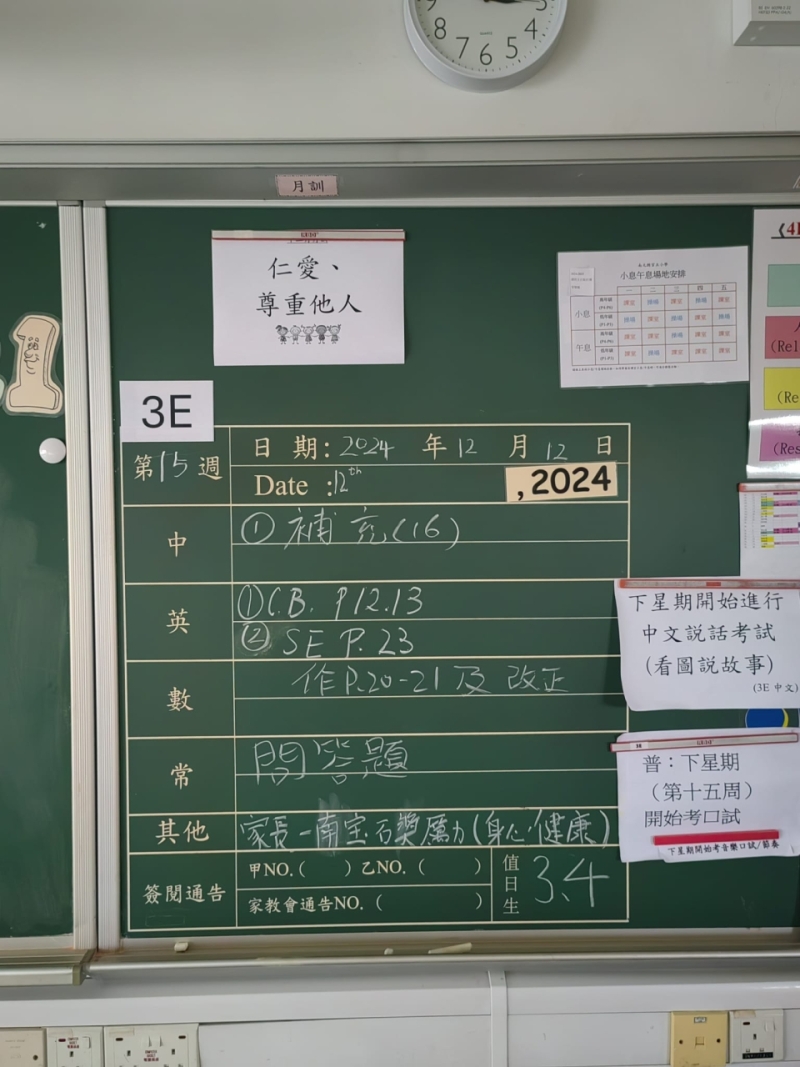 8 7 6 5 4
月訓
仁愛、
尊重他人
小息午息場地安排
一 二 三 四 五
小息
午息
3E
第15週
日 期: 2024 年 12 月 12 日
Date :12th , 2024
中
① 補充(16)
英
① C.B. P12.13
② SE P.23
數
作P.20-21及 改正
常
問答題
其他
家長-南宝石獎勵(身心健康)
簽閱通告
甲NO.( ) 乙NO.( )
家教會通告NO.( )
值日生
3、4
(Rel
(Re
(Res
下星期開始進行
中文說話考試
(看圖說故事)
(3E 中文)
普：下星期
（第十五周）
開始考口試
下星期開始考音樂口試/節奏